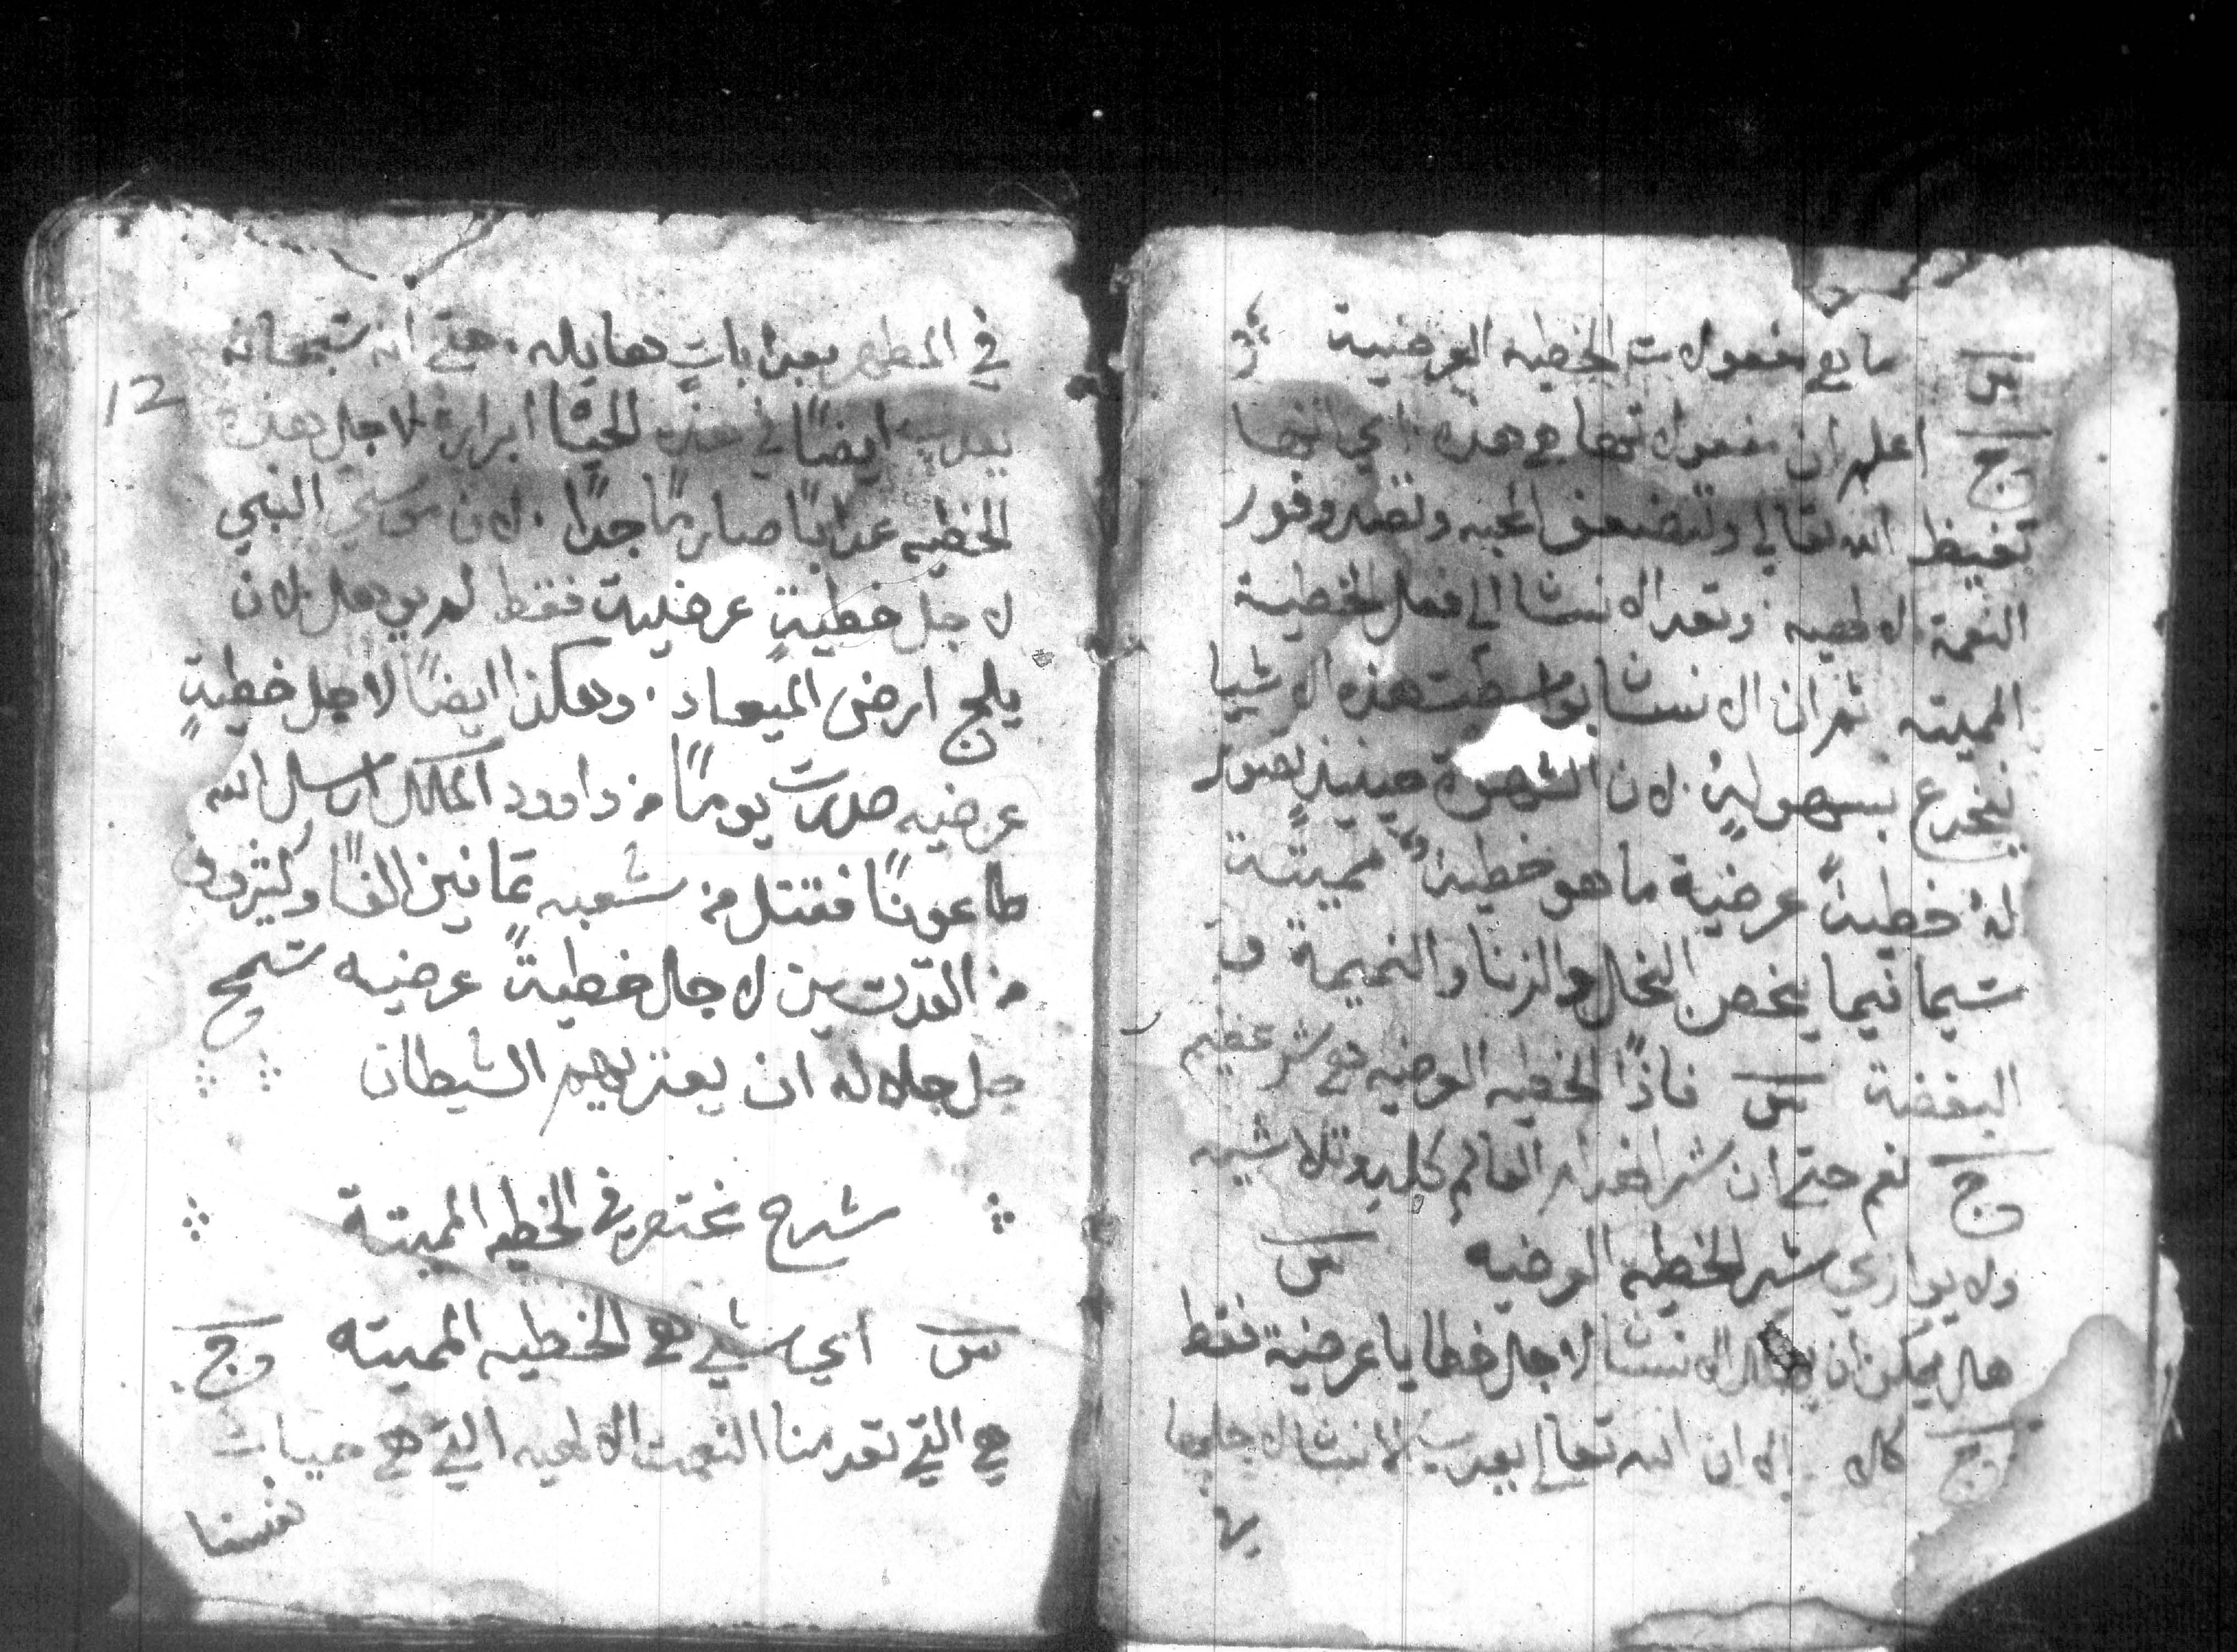 س ما هي مفعولات الخطيه العرضية
ج اعلم ان مفعولاتها هي هذه اي انها
تغيظ الله تعالي وتضعف المحبه وتصد وفور
النعمة الالهيه وتعد الانسان الي فعل الخطية
المميته ثم ان الانسان بواسطت هذه الاشيا
ينخدع بسهولةٍ لان الشهوة حينيذٍ تصور
لهُ خطيةً عرضية ما هو خطيةً مميتة
سيما فيما يخص البخل والزنا والنميمة و
البغضة س فاذًا الخطيه العرضيه هي شر عظيم
ج نعم حتي ان شر اضرار العالم كليه وتلاشيه
ولا يوازي شر الخطية العرضيه س
هل يمكن ان يهلك الانسان لاجل خطايا عرضية فقط
ج كلا الا ان الله تعالي يعدب الانسان لاجلها
في المطهر بعدابات هايله. حتي انه سبحانه
12
يعدب ايضًا في هذه الحياة ابراره لاجل هذه
الخطيه عدابًا صارمًا جدًا. لان موسي النبي
لاجل خطيةٍ عرضية فقط لم يوهل لان
يلج ارض الميعاد. وهكذا ايضًا لاجل خطيةٍ
عرضيه صدرت يومًا من داوود الملك ارسل الله
طاعونًا فقتل من شعبه ثمانين الفًا وكثيرون
من القديسين لاجل خطيةً عرضيه سمح
جل جلاله ان يعتريهم الشيطان
شرح مختصر في الخطيه المميتة
س اي شي هي الخطيه المميته ج
هي التي تعدمنا النعمت الالهيه التي هي حيات
نفسنا